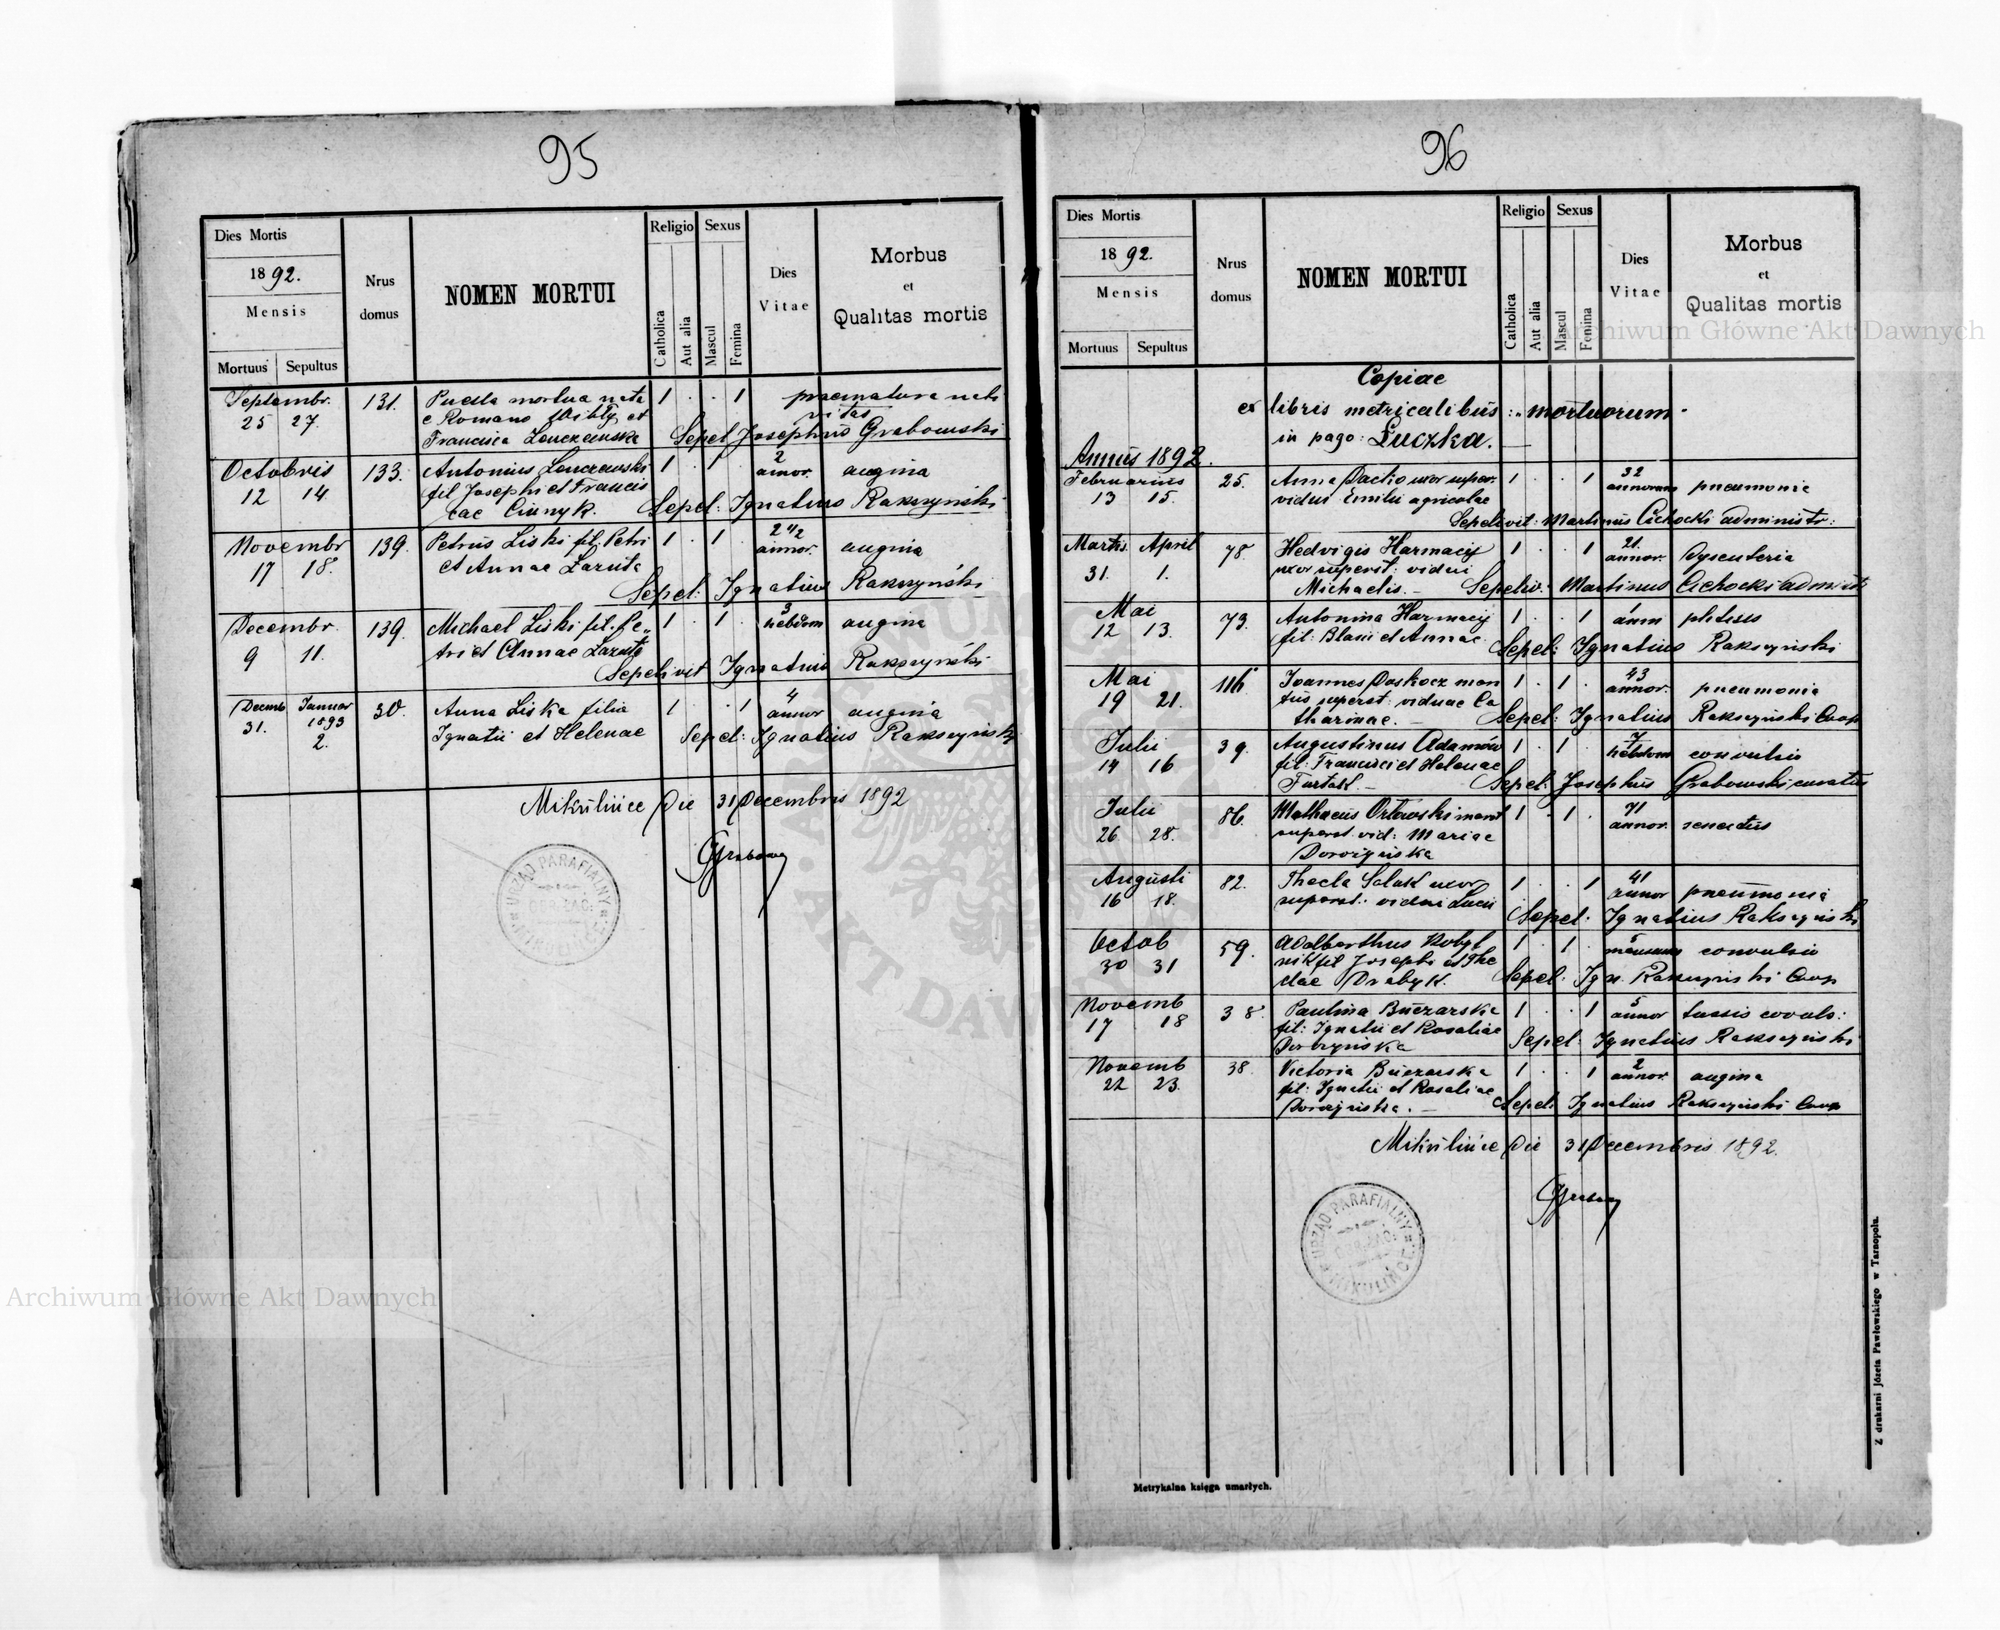 95
Dies Mortis
1892.
Mensis
Mortuus Sepultus
Nrus domus
NOMEN MORTUI
Religio
Catholica
Aut alia
Sexus
Mascul
Femina
Dies Vitae
Morbus
et
Qualitas mortis
Septembr. 131. Puella mortua nata 1 . . 1 praematura nati
25 27. e Romano et vitas
Francisca Sepel Josephus Grabowski
Octobris 133. Antonius 1 . 1 . 2 annor. angina
12 14 fil Josephi et Francis
cae Sepel: Ignatius Rakszyński
Novembr 139. Petrus Liski fil. Petri 1 . 1 . 2 1/2 annor. angina
17 18. et Annae Zaruta
Sepel: Ignatius Rakszyński
Decembr. 139. Michael Liski fil. Pe„ 1 . 1 . 3 hebdom angina
9 11. tri et Annae Zaruta
Sepelivit Ignatius Rakszyński
Decemb Januar 30. Anna Liska filia 1 . . 1 4 annor angina
31. 1893 2. Ignatii et Helenae Sepel: Ignatius Rakszyński
Mikulińce Die 31 Decembris 1892
URZĄD PARAFIALNY
MIKULIŃCE
96
Dies Mortis
1892.
Mensis
Mortuus Sepultus
Nrus domus
NOMEN MORTUI
Religio
Catholica
Aut alia
Sexus
Mascul
Femina
Dies Vitae
Morbus
et
Qualitas mortis
Copiae
ex libris metricalibus mortuorum
in pago: Łuczka.
Annus 1892.
Februarius 25. Anna uxor super. 1 . . 1 32 annorum pneumonia
13 15. vidui Emili agricolae
Sepelivit: Martinus Cichocki administr:
Martis. April 78. Hedvigis Harmacij 1 . . 1 21. annor. Dysenteria
31. 1. uxor superst: vidui
Michaelis. Sepeliv: Martinus Cichocki administ
Mai 73. Antonina Harmacij 1 . . 1 anni phtisis
12 13. fil: Blasii et Annae Sepel: Ignatius Rakszyński
Mai 116 Joannes Doskocz mari 1 . 1 . 43 annor. pneumonia
19 21. tus superst: viduae Ca
tharinae. Sepel: Ignatius Rakszyński Coop
Julii 39. Augustinus Adamów 1 . 1 . 7 hebdom convulsio
14 16 fil: Francisci et Helenae
Furtak. Sepel: Josephus Grabowski curatus
Julii 86. Mathaeus Orłowski marit 1 . 1 . 71 annor. senectus
26 28. superst. vid: Mariae
Augusti 82. Thecla Salak uxor 1 . . 1 41 annor pneumonia
16 18. superst: vidui Lucii
Sepel: Ignatius Rakszyński
Octob 59. Adalberthus Kobyl 1 . 1 . 5 convulsio
30 31 nik fil Josephi et The
clae Drabyk. Sepel: Ign. Rakszyński Coop
Novemb 38. Paulina 1 . . 1 5 annor tussis convuls:
17 18 fil: Ignatii et Rosaliae
Sepel: Ignatius Rakszyński
Novemb 38. Victoria 1 . . 1 2 annor. angina
22 23. fil: Ignatii et Rosaliae
Sepel: Ignatius Rakszyński Coop
Mikulińce Die 31 Decembris 1892.
URZĄD PARAFIALNY
MIKULIŃCE
Metrykalna księga umarłych.
Z drukarni Józefa Pawłowskiego w Tarnopolu.
Archiwum Główne Akt Dawnych
Archiwum Główne Akt Dawnych